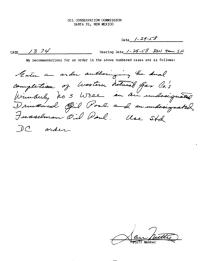 OIL CONSERVATION COMMISSION
SANTA FE, NEW MEXICO
Date 1-29-58
CASE 1374 Hearing Date 1-28-58
My recommendations for an order in the above numbered cases are as follows:
Enter an order authorizing the dual
completion of Western Natural Gas Co's
Wimberly No 3 Well in an undesignated
Devonian Oil Pool and an undesignated
Fusselman Oil Pool. Use Std
DC order